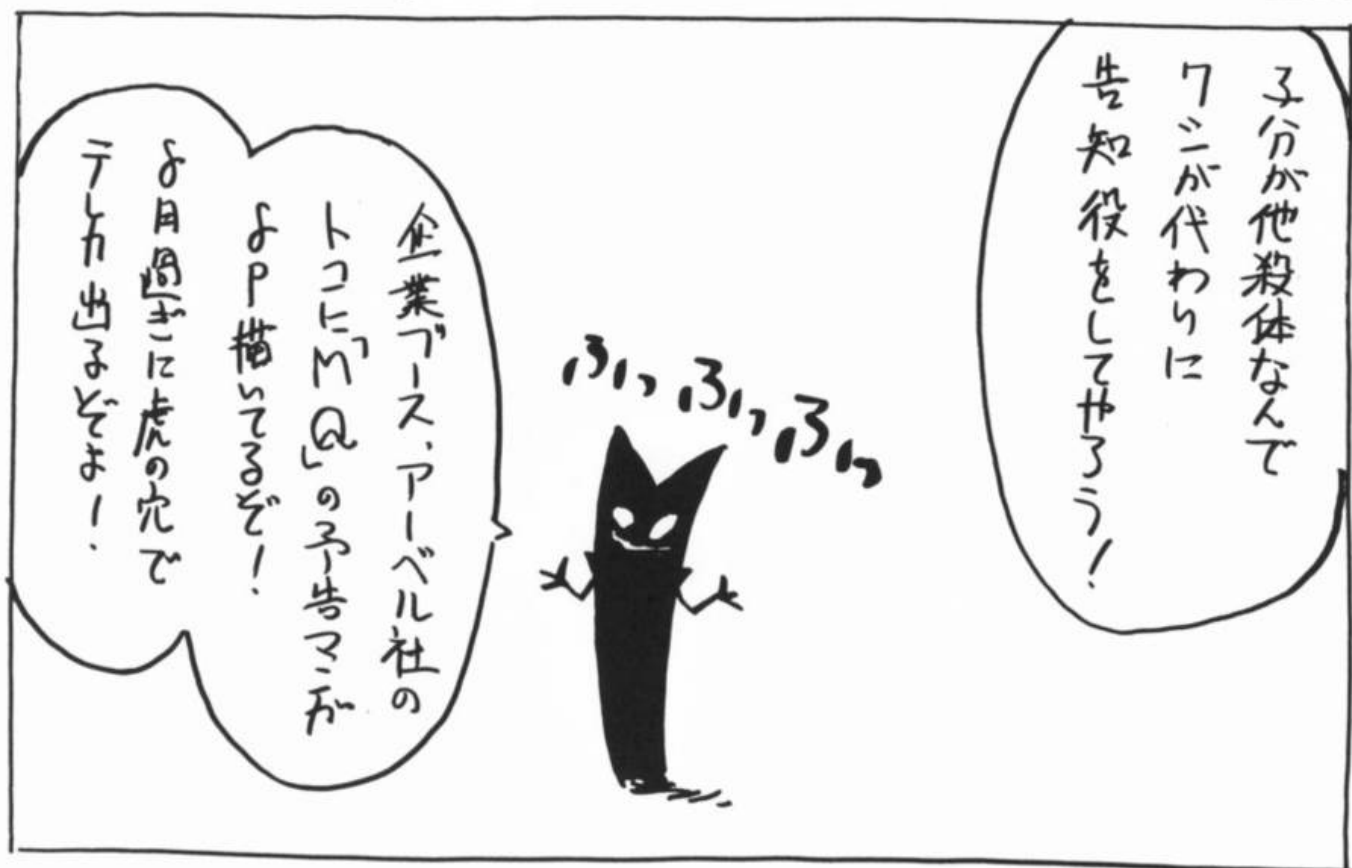 子分が他殺体なんで
ワシが代わりに
告知役をしてやろう！
ふっふっふっ
企業ブース、アーベル社の
トコに「MQ」の予告マンガ
8P描いてるぞ！
8月過ぎに虎の穴で
テレカ出るぞよ！